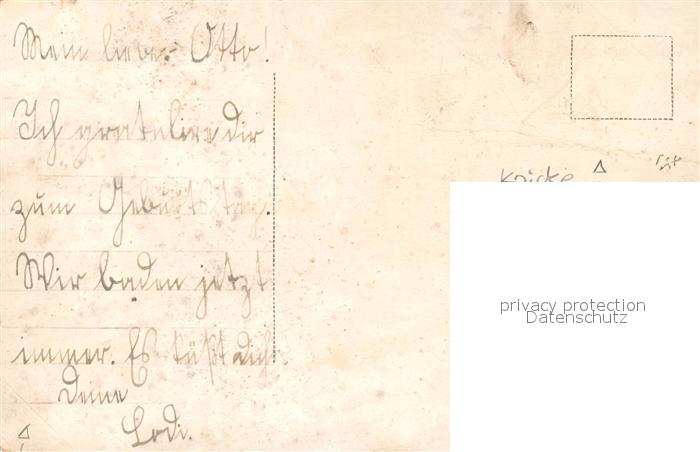 Mein lieber Otto!
Ich gratuliere dir
zum Geburtstag.
Wir baden jetzt
immer. Es küßt dich
Deine
Lodi.
privacy protection
Datenschutz